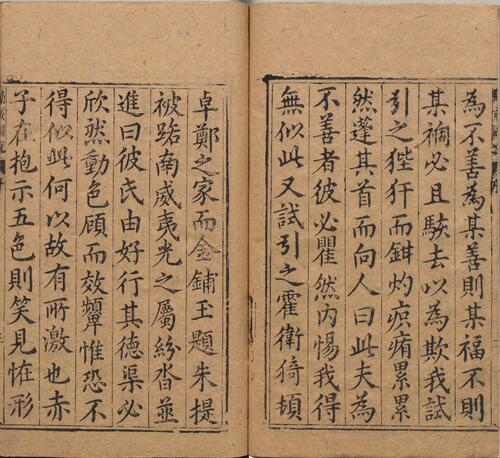 為不善為某善則某福不則
某禍必且駭去以為欺我試
引之狴犴而鉗灼疻痏累累
然蓬其首而向人曰此夫為
不善者彼必瞿然内惕我得
無似此又試引之霍衛猗頓
卓鄭之家而金鋪玉題朱提
被路南威夷光之屬紛沓並
進曰彼氏由好行其德渠必
欣然動色顧而效顰惟恐不
得似此何以故有所激也赤
子在抱示五色則笑見恠形